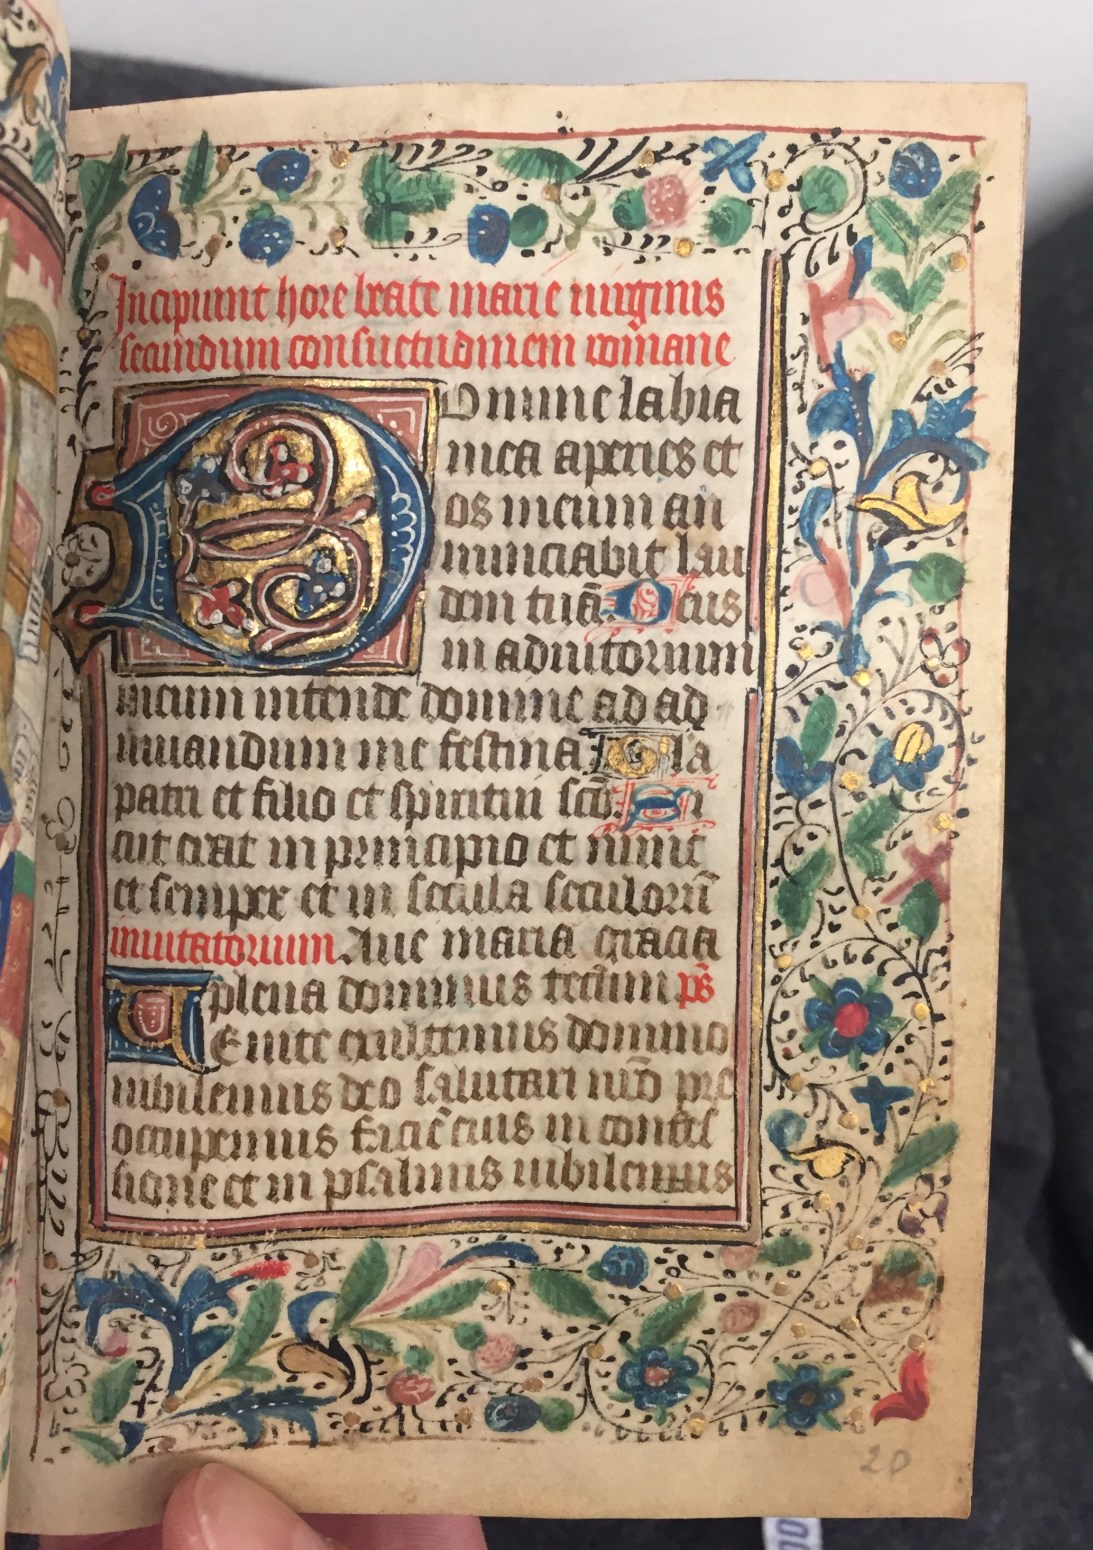 Incipiunt hore beate marie uirginis
secundum consuetudinem romane
Domine labia
mea aperies et
os meum an
nunciabit lau
dem tuā. Deus
in adiutorium
meum intende domine ad ad
iuuandum me festina Gla
patri et filio et spiritui scō. Si
cut erat in principio et nunc
et semper et in secula seculorū
inuitatorium. Aue maria gracia
plena dominus tecum ps̄
Uenite exultemus domino
iubilemus deo salutari nr̄o pre
occupemus faciē eius in confes
sione et in psalmis iubilemus
20